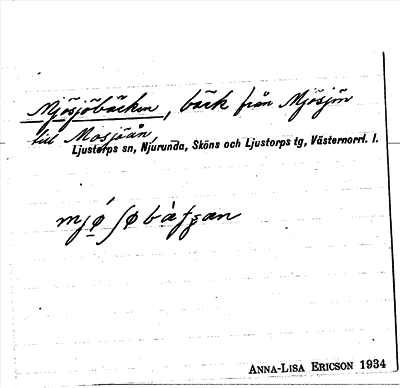 Mjösjöbäcken, bäck från Mjösjön
till Mosjöån,
Ljustorps sn, Njurunda, Sköns och Ljustorps tg, Västernorrl. l.
ANNA-LISA ERICSON 1934